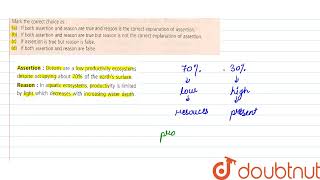 Mark the correct choice as :
(a) If both assertion and reason are true and reason is the correct explanation of assertion.
(b) If both assertion and reason are true but reason is not the correct explanation of assertion.
(c) If assertion is true but reason is false.
(d) If both assertion and reason are false.
Assertion : Oceans are a low productivity ecosystems
despite occupying about 70% of the earth's surface.
Reason : In aquatic ecosystems, productivity is limited
by light, which decreases with increasing water depth.
70% 30%
low high
resources present
pro
doubtnut